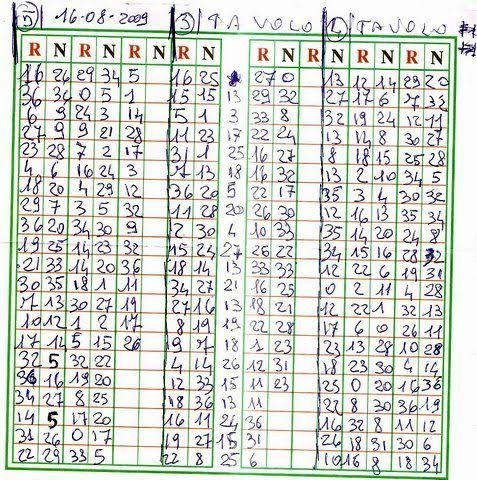 16-08-2009 3) TAVOLO 4) TAVOLO
R N R N R N R N R N R N R N R N
16 26 29 34 5 16 25 27 0 13 12 14 29 20
36 34 0 5 1 15 15 13 29 32 27 17 6 7 33
6 9 24 3 14 5 1 3 33 8 32 19 24 12 11
27 9 9 21 28 11 23 17 22 24 13 14 8 30 27
23 28 7 2 17 31 1 25 16 27 8 18 15 25 28
4 6 16 24 3 7 13 18 16 32 13 2 10 34 5
18 20 4 29 12 36 20 5 22 17 35 3 4 30 32
29 7 3 5 32 11 28 20 26 30 12 16 13 35 34
36 20 34 30 9 12 30 4 10 33 35 14 20 24 8
19 25 14 23 32 15 24 27 26 22 34 15 16 28 32
21 33 14 20 36 18 14 13 33 33 12 22 6 19 31
30 35 18 1 11 34 27 21 16 25 0 2 11 4 28
7 13 30 27 19 27 16 13 18 21 12 22 1 32 13
10 12 1 2 17 8 19 19 22 28 17 6 0 26 11
17 14 5 15 26 19 7 18 1 23 23 13 28 10 28
32 5 32 22 4 14 26 12 31 18 23 30 4 14
36 16 19 20 12 33 15 11 23 25 0 20 16 36
34 27 8 25 18 36 13 11 22 8 30 36 19
14 5 17 20 16 11 24 36 16 32 8 11 12
31 26 0 17 19 27 15 31 26 18 31 30 6
22 29 33 5 22 8 25 6 10 16 8 18 34